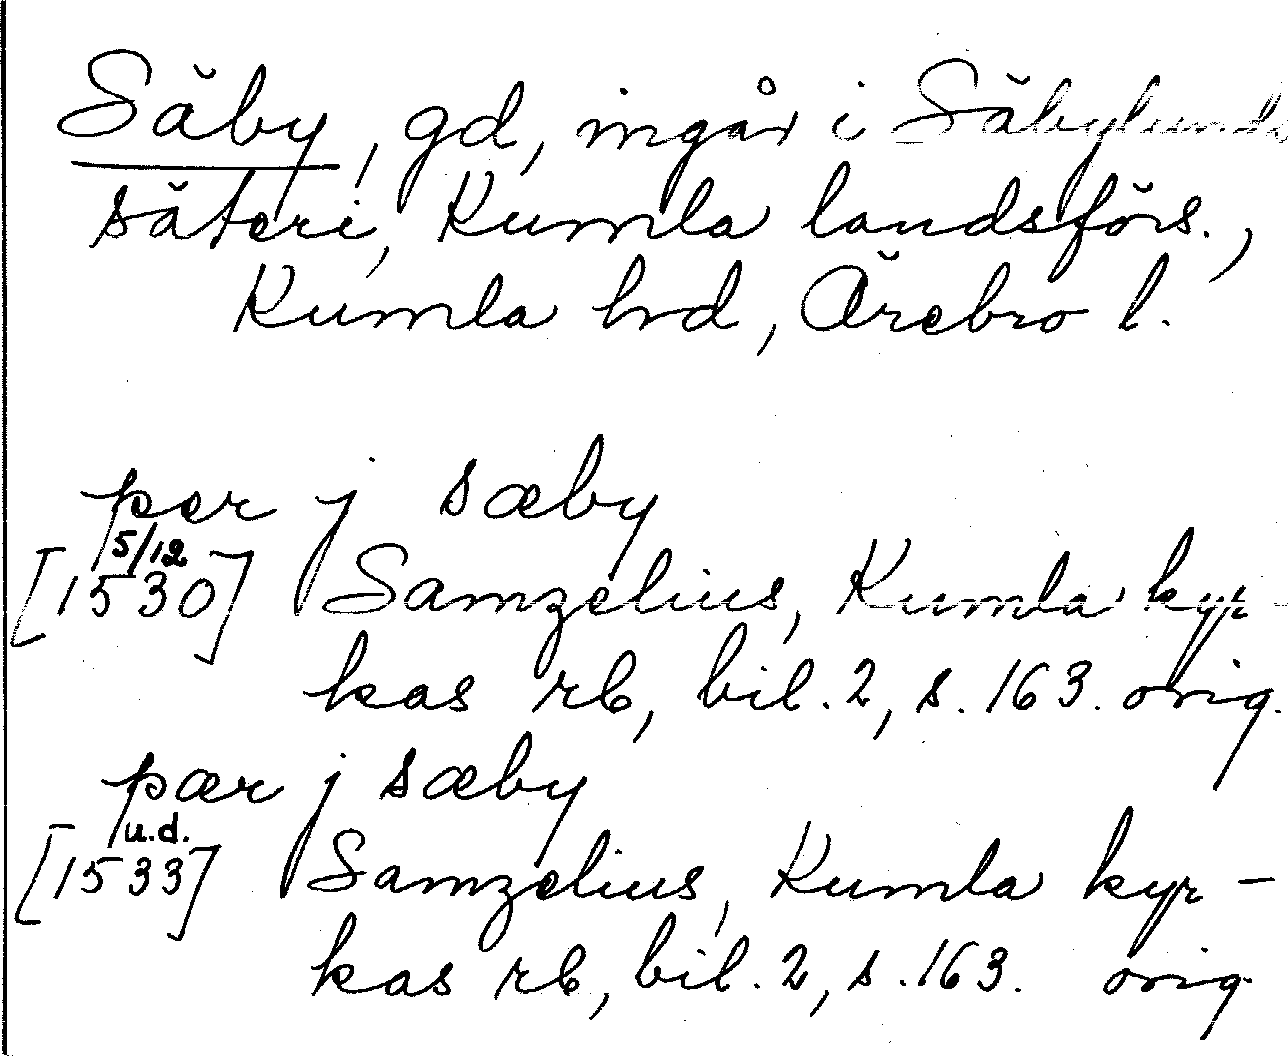 Säby, gd, ingår i Säbylunds
säteri, Kumla landsförs.,
Kumla hd, Örebro l.
per j sæby
5/12
[1530] Samzelius, Kumla kyr-
kas rb, bil. 2, s. 163. orig.
pær j sæby
u.d.
[1533] Samzelius, Kumla kyr-
kas rb, bil. 2, s. 163. orig.